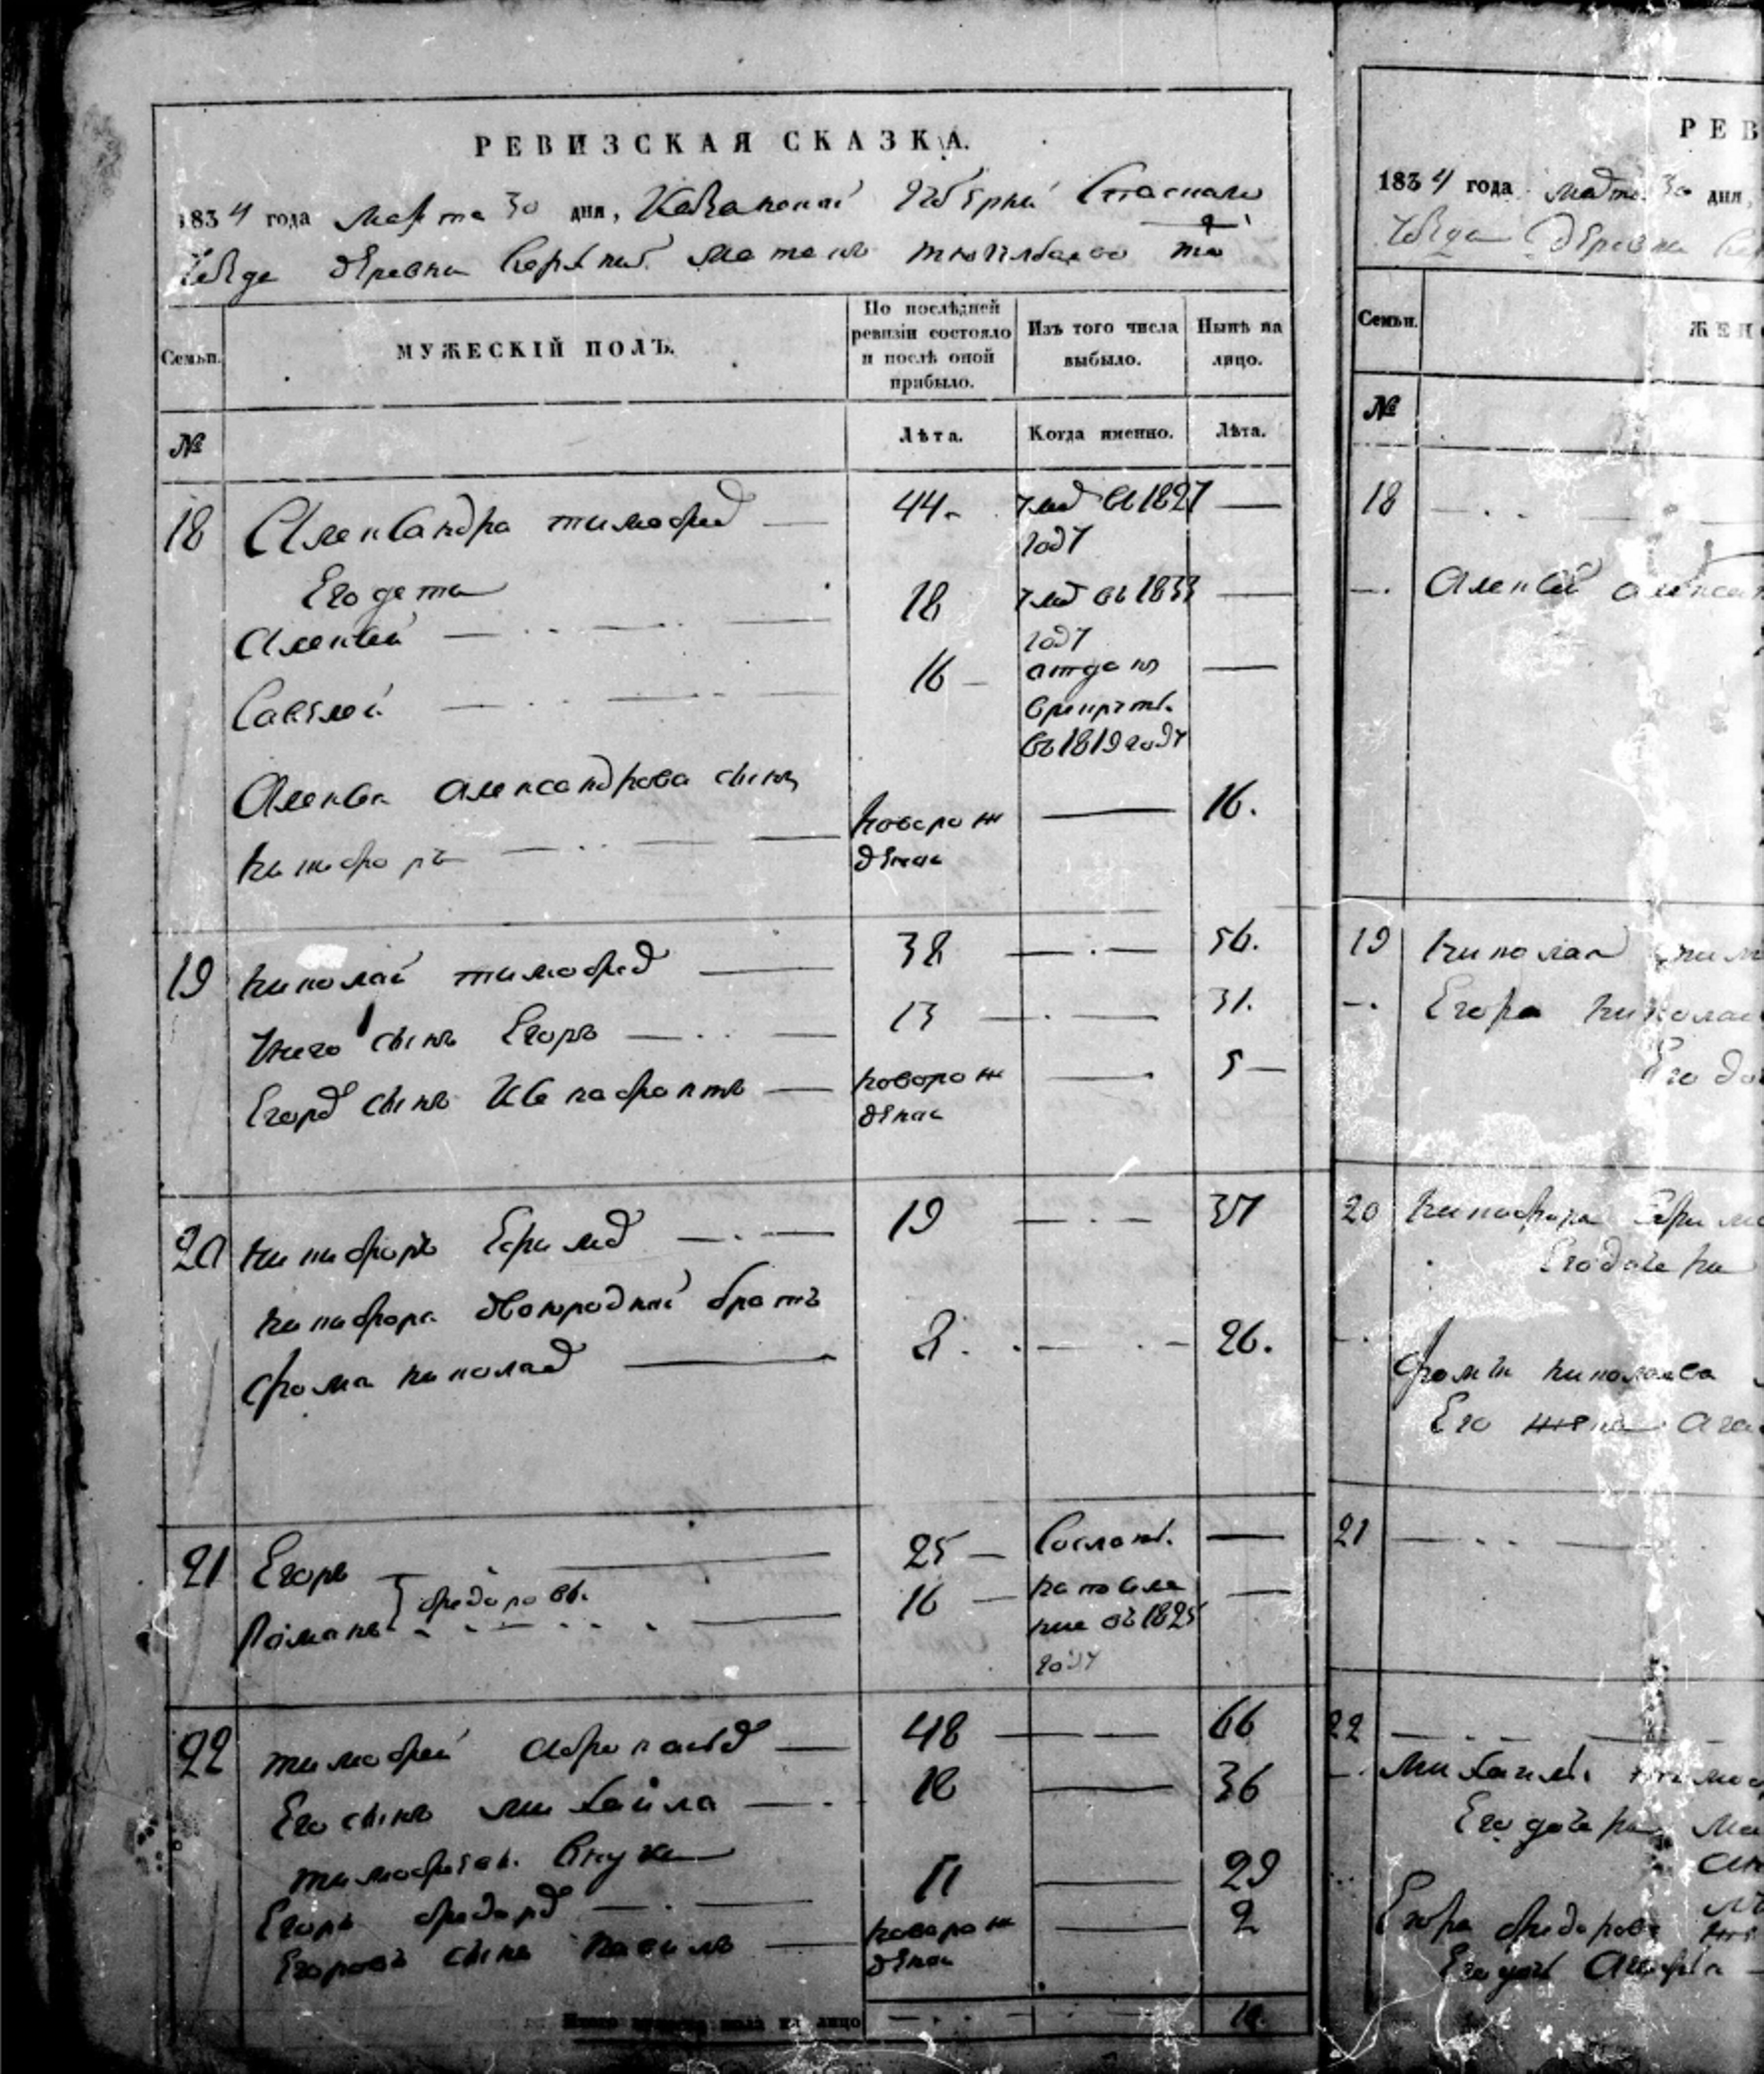 РЕВИЗСКАЯ СКАЗКА.
1834 года марта 30 дня, Казанской Губерни Спаскаго
уезда деревни
Семьи.
МУЖЕСКІЙ ПОЛЪ.
По послѣдней ревизіи состояло и послѣ оной прибыло.
Изъ того числа выбыло.
Нынѣ на лицо.
№
Лѣта.
Когда именно.
Лѣта.
18 Александра тимофеев 44 умер въ 1827 году —
Его дети
Алексей 18 умер въ 1833 году —
Савелей 16 отдан в рекруты въ 1819 году —
Алексея Александрова сынъ
никифоръ новорожденас — 16.
19 николай тимофеев 38 — 56.
у него сынъ Егоръ 13 — 31.
Егоров сынъ новорожденас — 5
20 никифоръ Ефимов 19 — 37
никифора двоюродный братъ
фома николаев 8. — 26.
21 Егоръ 25 Сосланы —
Романъ } федоровы. 16 на поселение въ 1825 году —
22 тимофей 48 — 66
Его сынъ михайла 18 — 36
тимофеевы внуки
Егоръ федоров 11 — 29
Егоровъ сынъ новорожденас — 2
Итого мужеска пола на лицо 10.
РЕВ
1834 года марта 30 дня,
уезда деревни
Семьи.
ЖЕН
№
18
Алексея александ
19 николая тимо
Егора николае
Его до
20 никифора Ефимо
Его дочери
фомы николаева
Его жена ага
21
22
михаилы тимоф
Его дочери ма
Егора федорова
Его дочь